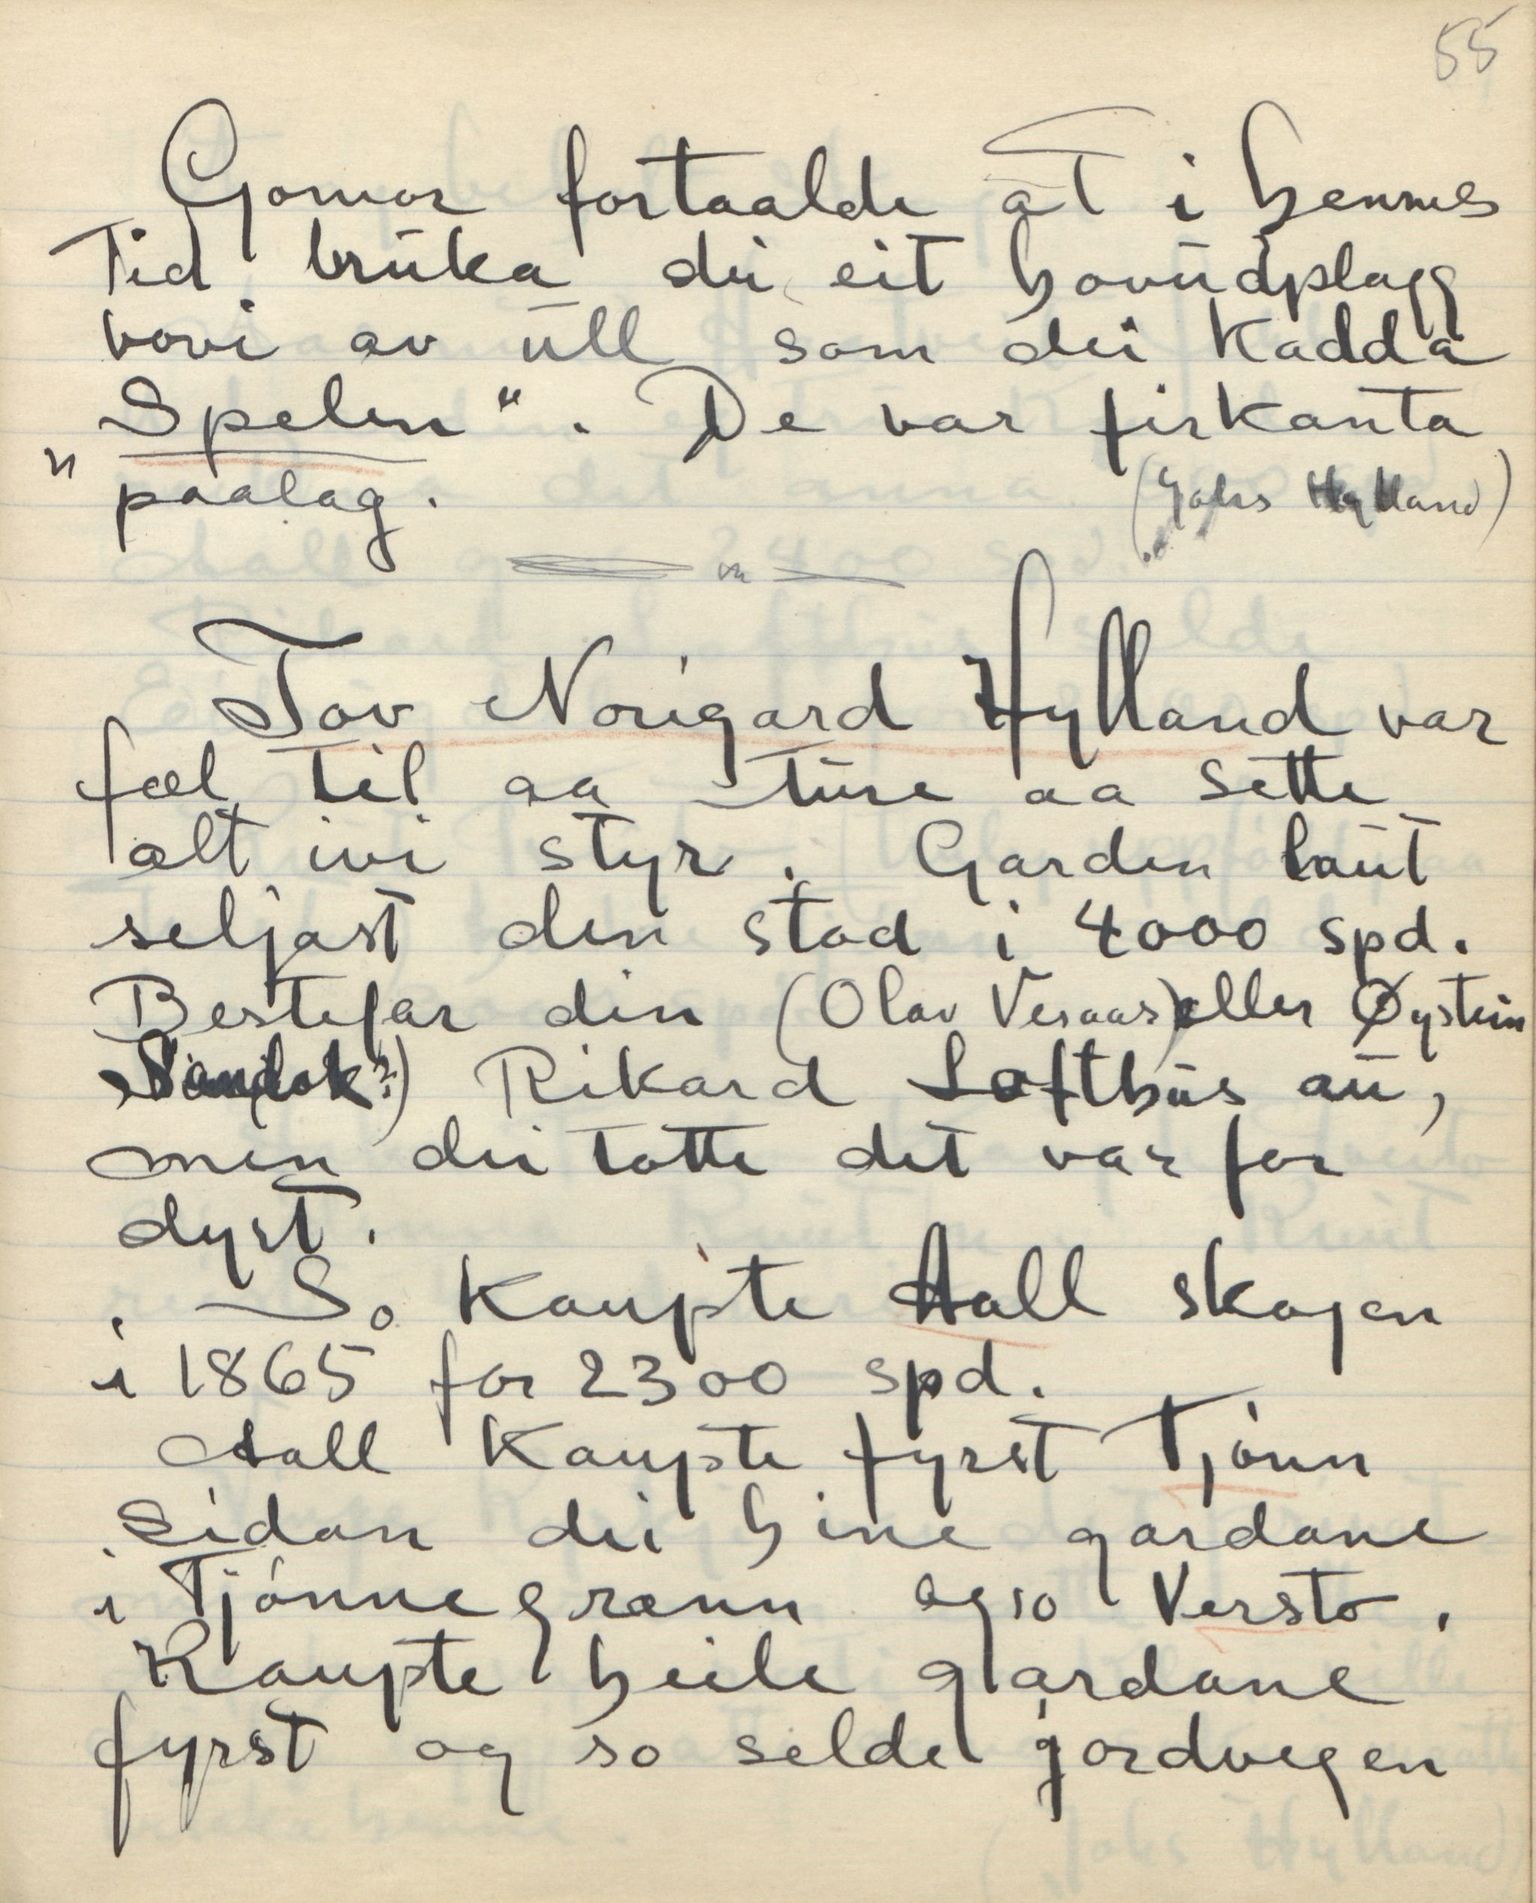 55
Gomor fortaalde at i hennes
Tid bruka dei eit hovudplagg
vovi av ull som dei kadda
„Spelen“. De var firkanta
paalag. (Johs Hylland)
Tov Norigard Hylland var
fæl til aa ture aa sette
alt ivi styr. Garden laut
seljast den stod i 4000 spd.
Bestefar din (Olav Vesaas) eller Øystein
Rikard Lofthus au,
men dei totte det var for
dyrt.
So kaupte Aall skogen
i 1865 for 2300 spd.
Aall kaupte fyrst Tjónn
Sidan dei hine gardane
i Tjónnegrænn ogso Versto.
Kaupte heile gardane
fyrst og so selde jordvegen